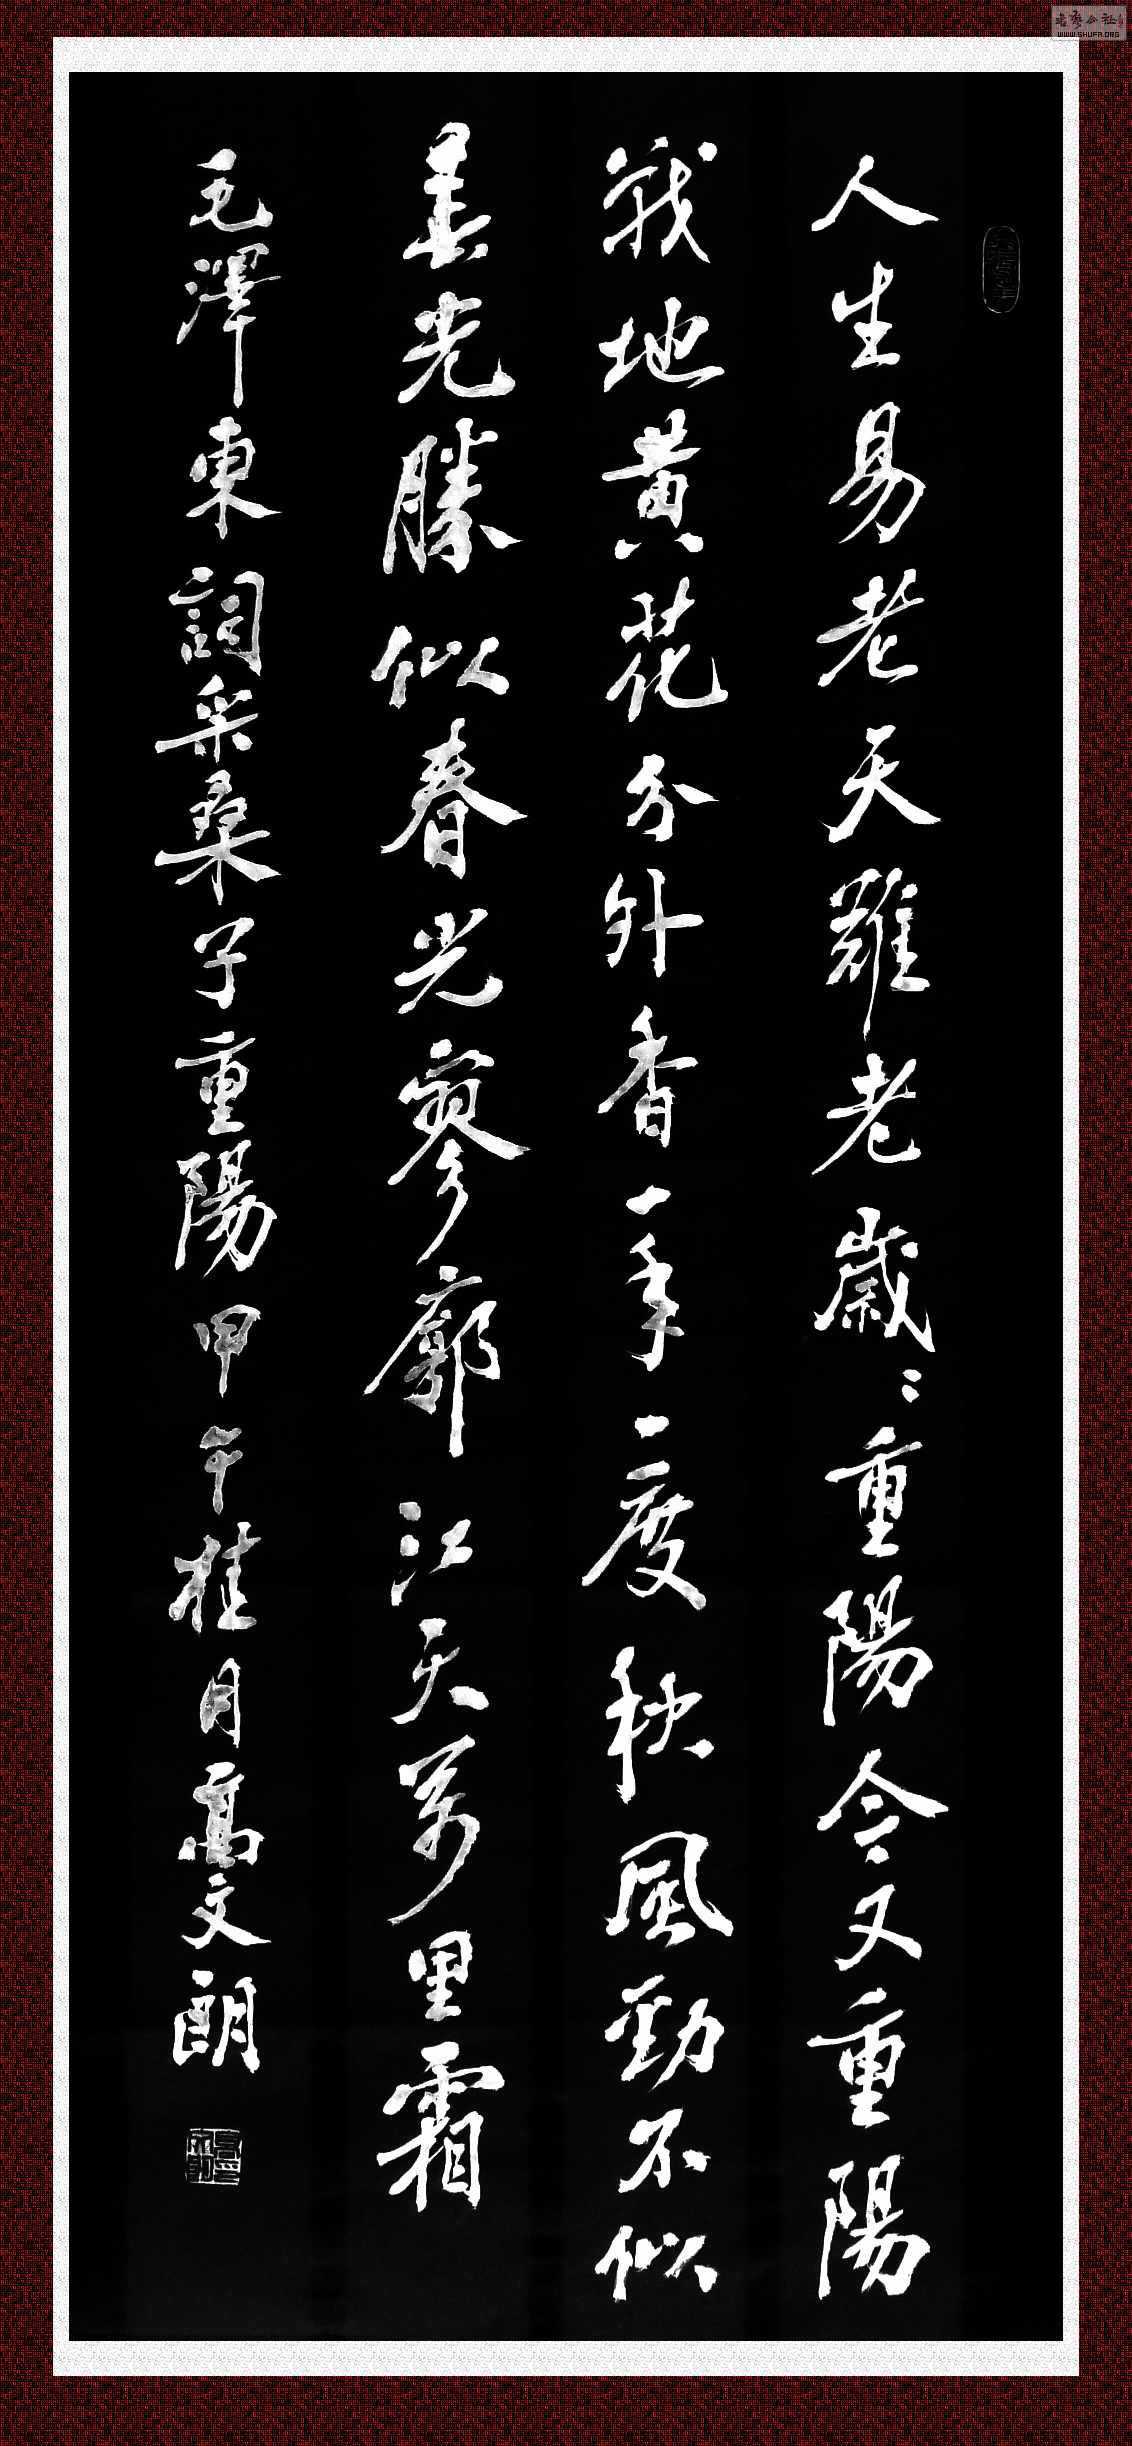 人生易老天難老歲〻重陽今又重陽
戰地黃花分外香一年一度秋風勁不似
春光勝似春光寥廓江天萬里霜
毛澤東詞采桑子重陽甲午桂月高文朗
WWW.SHUFA.ORG